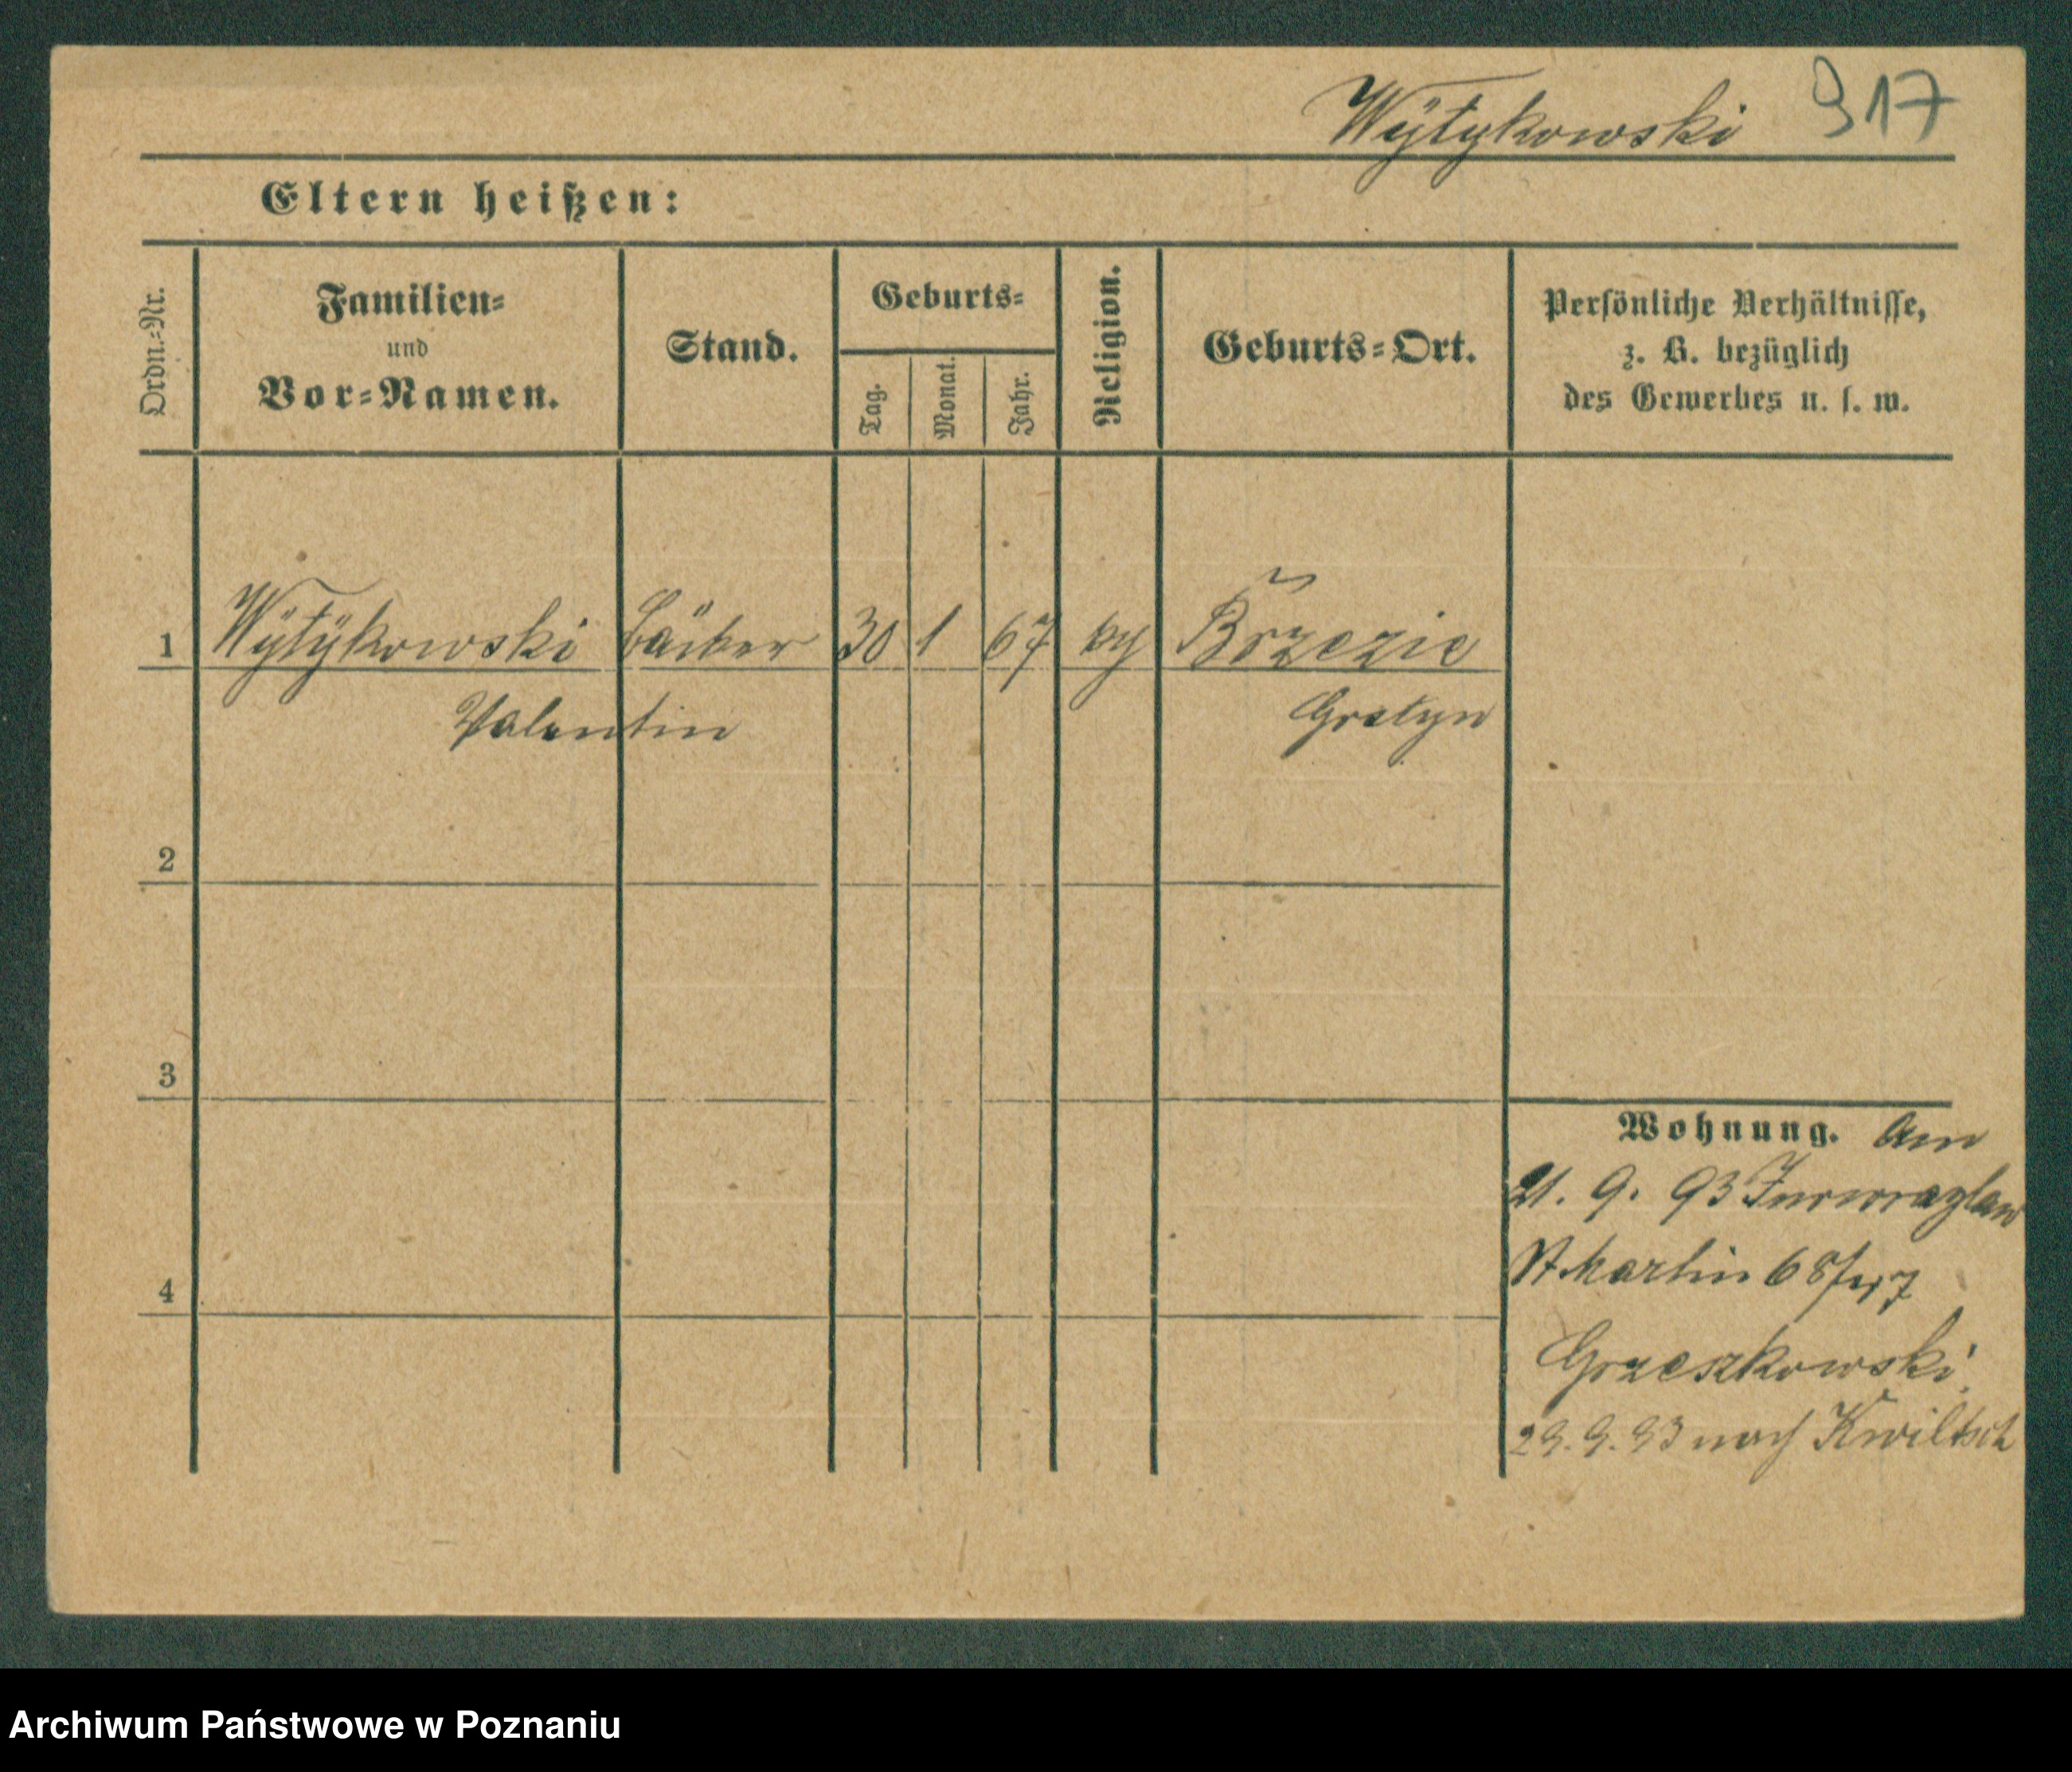 Wÿtykowski 917
Eltern heißen:
Ordn.-Nr.
Familien-
und
Vor-Namen.
Stand.
Geburts-
Tag.
Monat.
Jahr.
Religion.
Geburts-Ort.
Persönliche Verhältnisse,
z. B. bezüglich
des Gewerbes u. s. w.
1 Wÿtÿkowski Bäcker 30 1 67 Brzezie
Valentin Gostyn
2
3
4
Wohnung. Am
21. 9. 93 Inowrazlaw
St Martin 68
Grzeszkowski
29. 9. 93 nach Kwiltsch
Archiwum Państwowe w Poznaniu